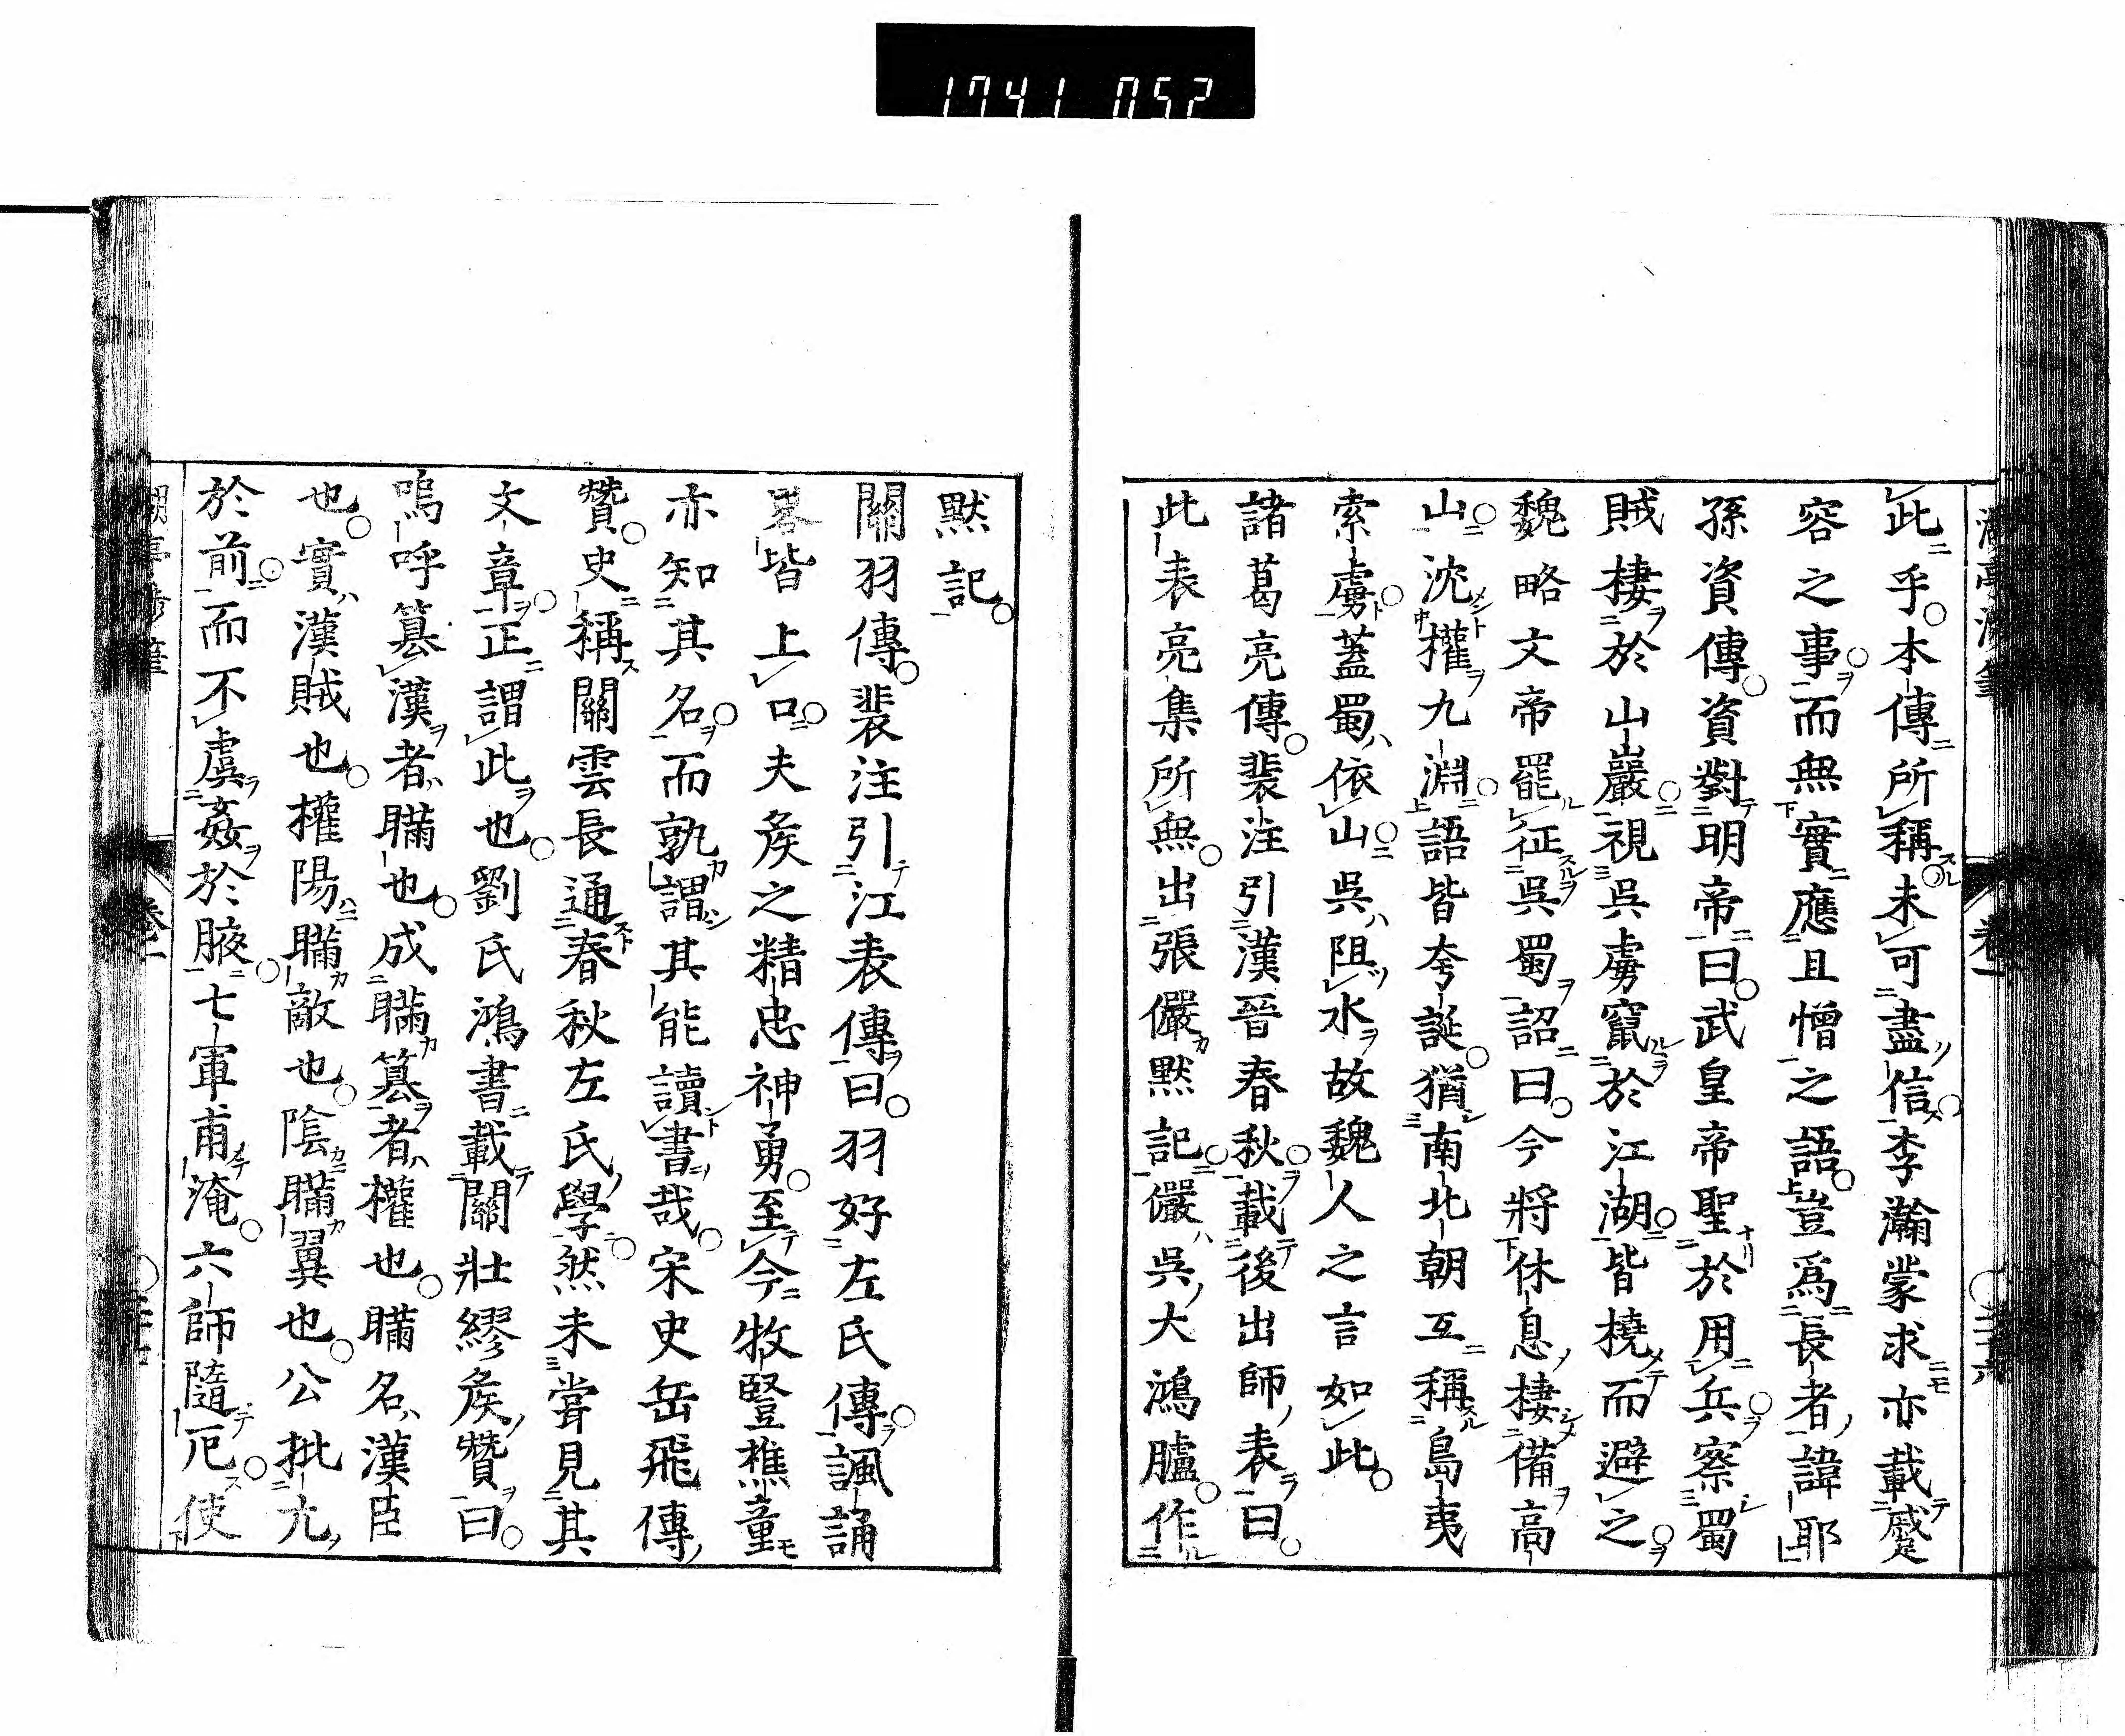 1741 052
此乎本傳所稱未可盡信李瀚蒙求亦載蹙
容之事而無實應且憎之語豈爲長者諱耶
孫資傳資對明帝曰武皇帝聖於用兵察蜀
賊棲於山巖視吳虜竄於江湖皆撓而避之
魏略文帝罷征吳蜀詔曰今將休息棲備高
山沈權九淵語皆夸誕猶南北朝互稱島夷
索虜蓋蜀依山吳阻水故魏人之言如此
諸葛亮傳裴注引漢晉春秋載後出師表曰
此表亮集所無出張儼默記儼吳大鴻臚作
默記
關羽傳裴注引江表傳曰羽好左氏傳諷誦
畧皆上口夫矦之精忠神勇至今牧豎樵童
亦知其名而孰謂其能讀書哉宋史岳飛傳
贊史稱關雲長通春秋左氏學然未嘗見其
文章正謂此也劉氏鴻書載關壯繆矦贊曰
嗚呼簒漢者瞞也成瞞簒者權也瞞名漢臣
也實漢賊也權陽瞞敵也陰瞞翼也公批亢
於前而不虞姦於腋七軍甫淹六師隨戹使
卷一